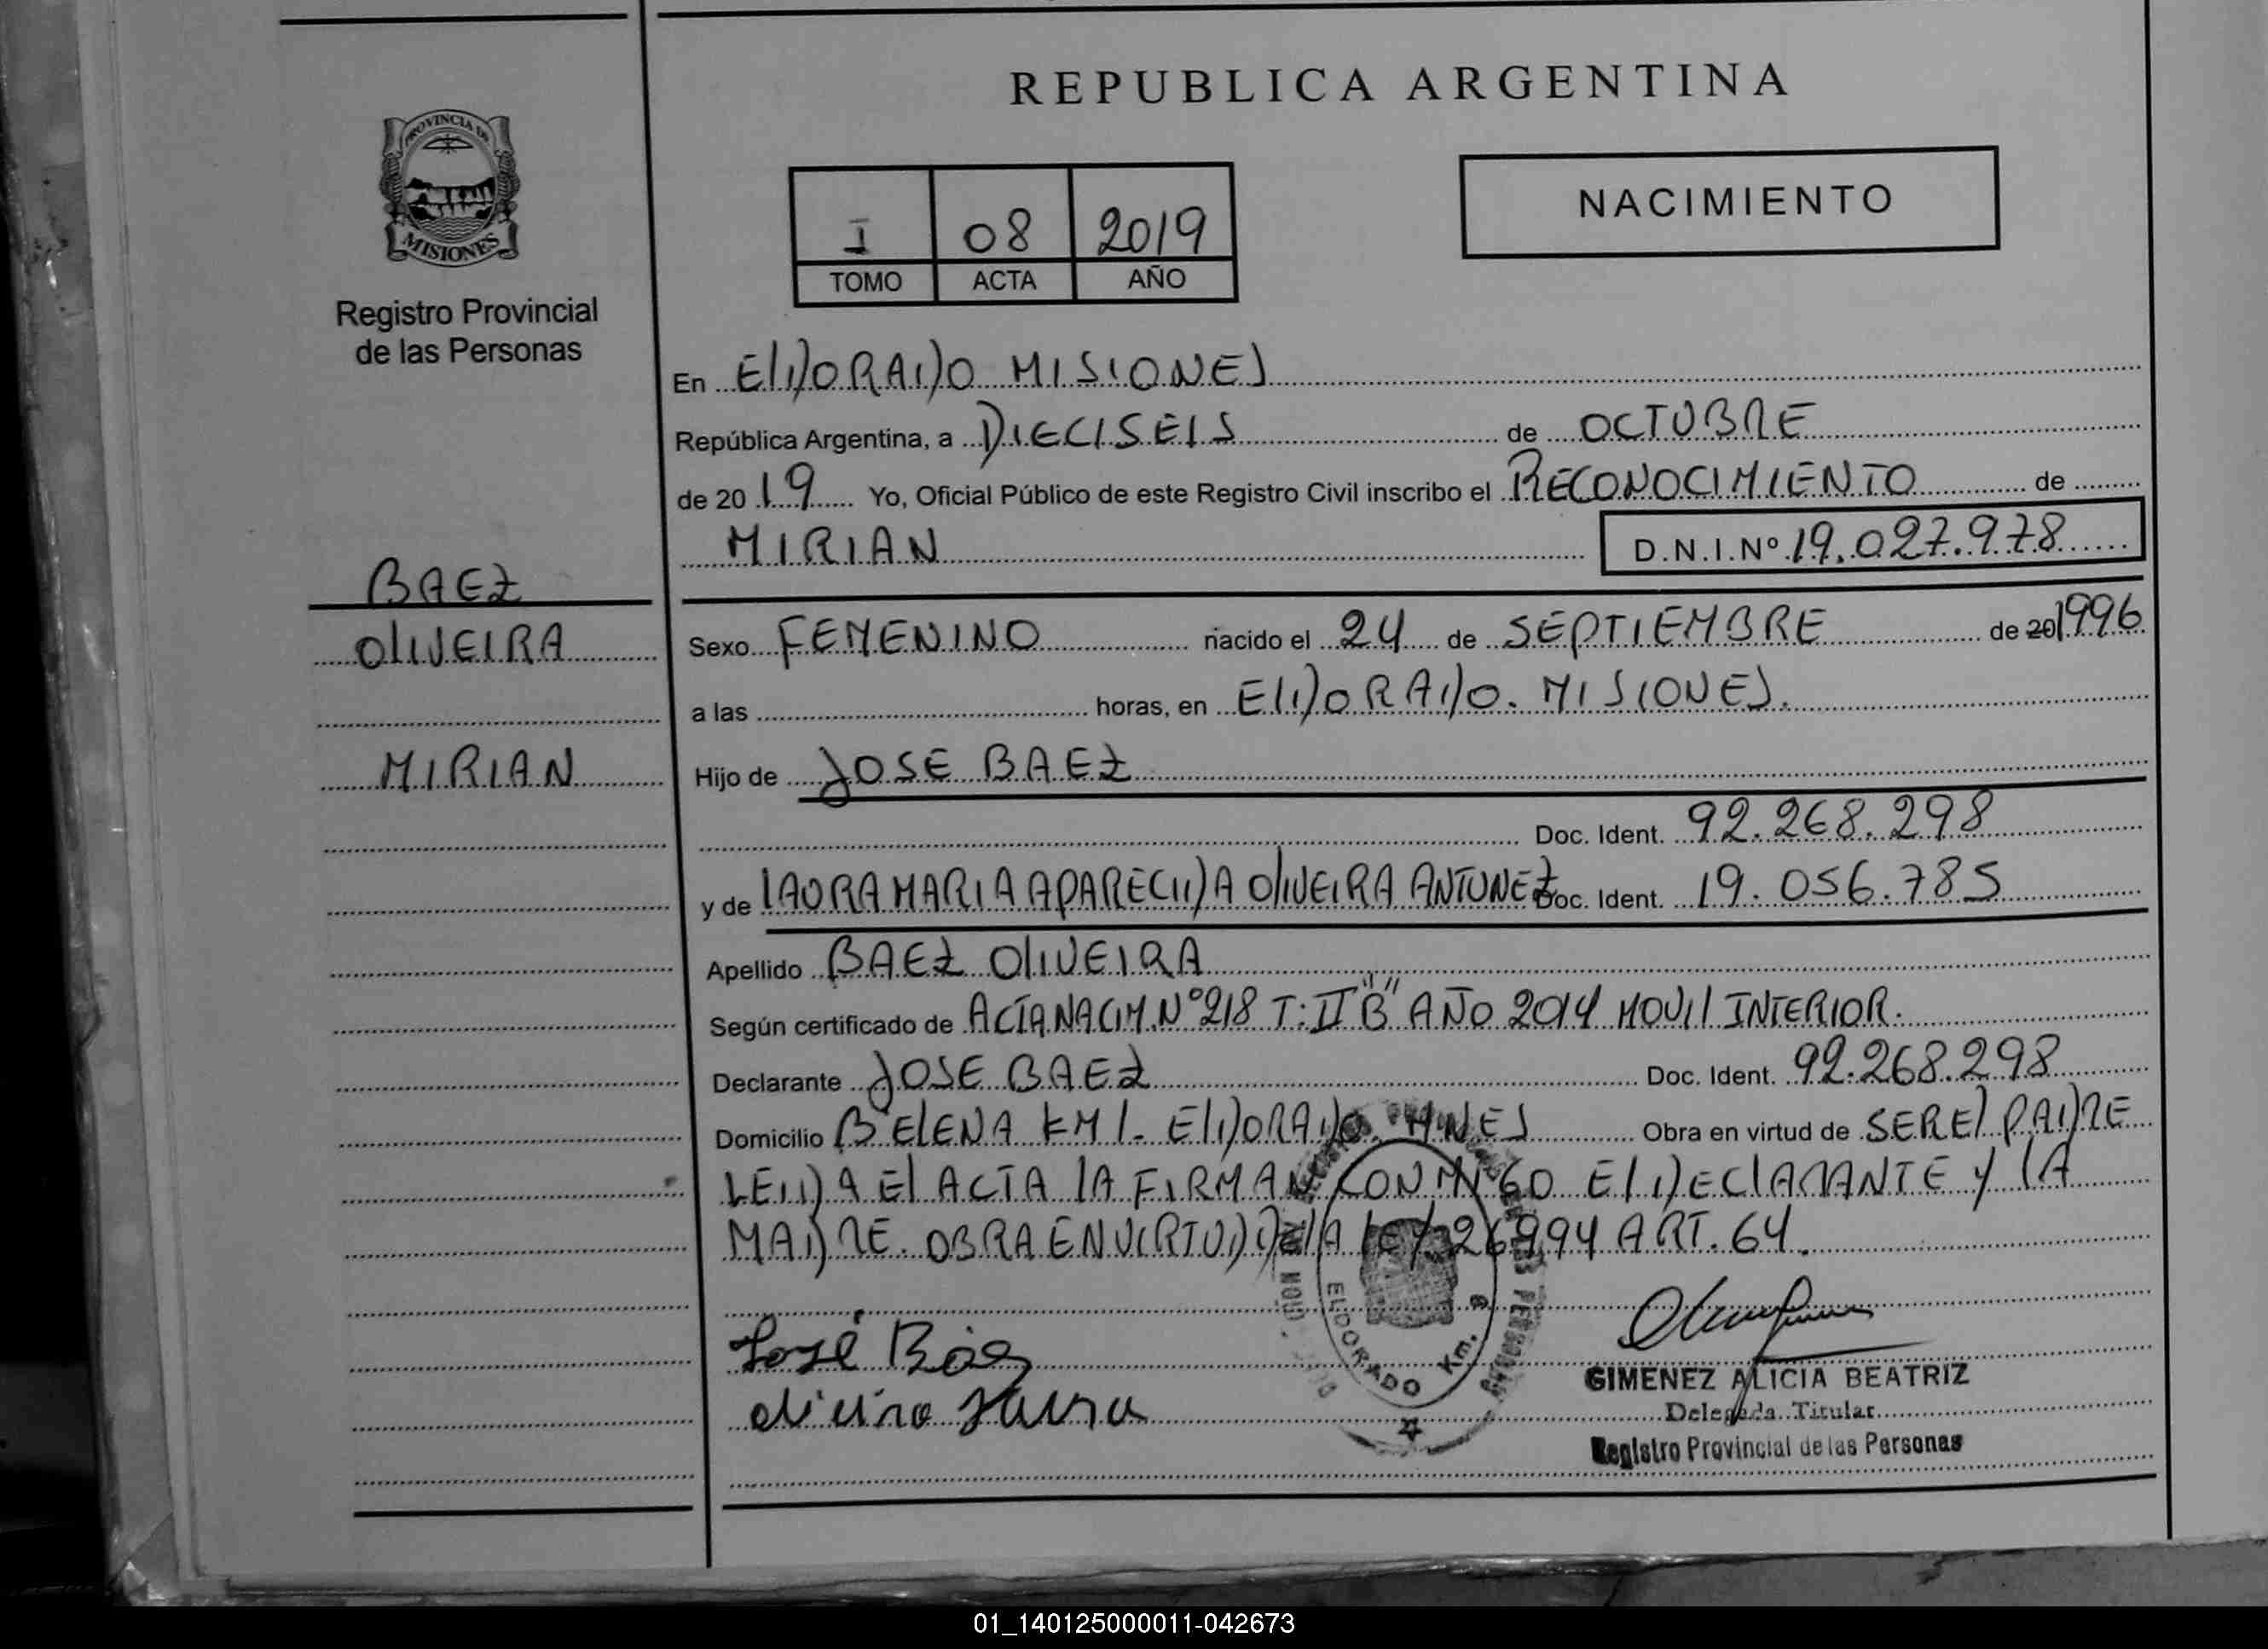 REPUBLICA ARGENTINA
PROVINCIA DE
MISIONES
Registro Provincial
de las Personas
I 08 2019
TOMO ACTA AÑO
NACIMIENTO
En ELDORADO MISIONES
República Argentina, a DIECISEIS de OCTUBRE
de 20 19 Yo, Oficial Público de este Registro Civil inscribo el RECONOCIMIENTO de
MIRIAN D.N.I.Nº 19.027.978
BAEZ
OLIVEIRA
MIRIAN
Sexo FEMENINO nacido el 24 de SEPTIEMBRE de 20 1996
a las horas, en ELDORADO. MISIONES.
Hijo de JOSE BAEZ
Doc. Ident. 92.268.298
y de LAURA MARIA APARECIDA OLIVEIRA ANTUNEZ Doc. Ident. 19.056.785
Apellido BAEZ OLIVEIRA
Según certificado de ACTA NACIM. Nº 218 T: II "B" AÑO 2014 MOVIL INTERIOR.
Declarante JOSE BAEZ Doc. Ident. 92.268.298
Domicilio Bº ELENA KM 1- ELDORADO. MNES Obra en virtud de SER EL PADRE
LEIDA EL ACTA LA FIRMAN CONMIGO EL DECLARANTE Y LA
MADRE. OBRA EN VIRTUD DE LA LEY 26994 ART. 64.
José Báez
GIMENEZ ALICIA BEATRIZ
Delegada Titular
Registro Provincial de las Personas
ELDORADO Km.
01_140125000011-042673